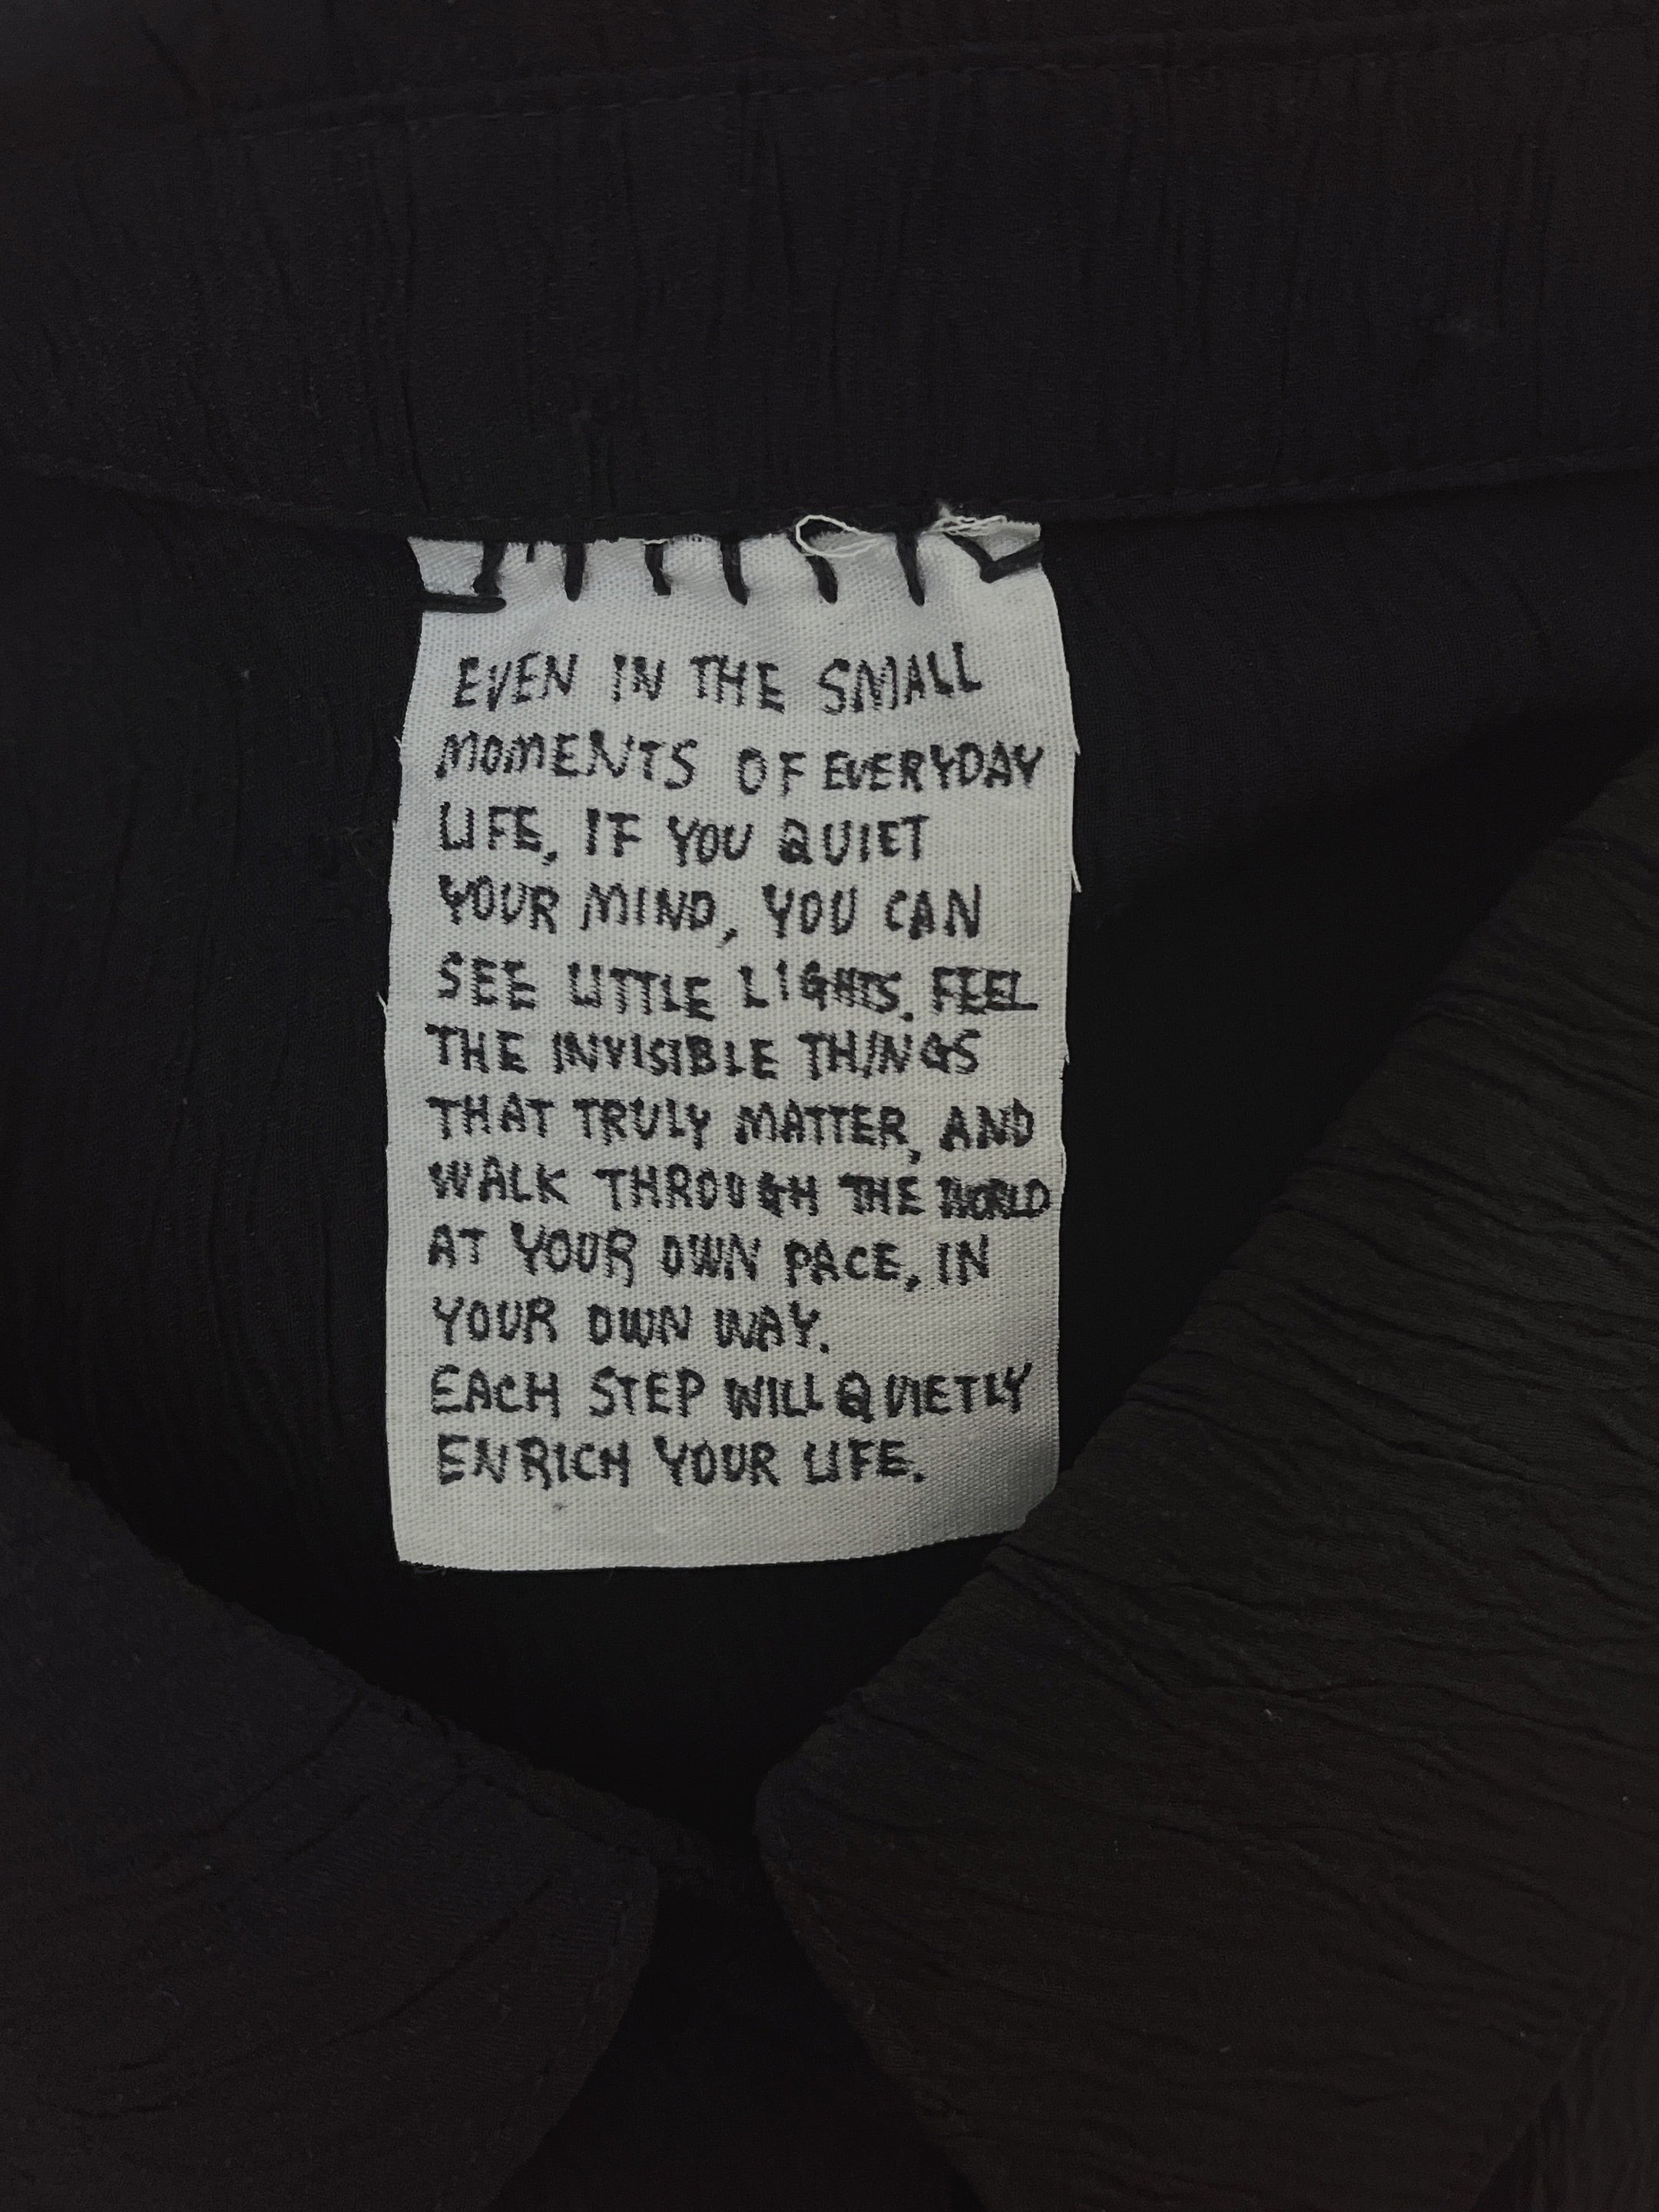 EVEN IN THE SMALL
MOMENTS OF EVERYDAY
LIFE, IF YOU QUIET
YOUR MIND, YOU CAN
SEE LITTLE LIGHTS. FEEL
THE INVISIBLE THINGS
THAT TRULY MATTER, AND
WALK THROUGH THE WORLD
AT YOUR OWN PACE, IN
YOUR OWN WAY.
EACH STEP WILL QUIETLY
ENRICH YOUR LIFE.